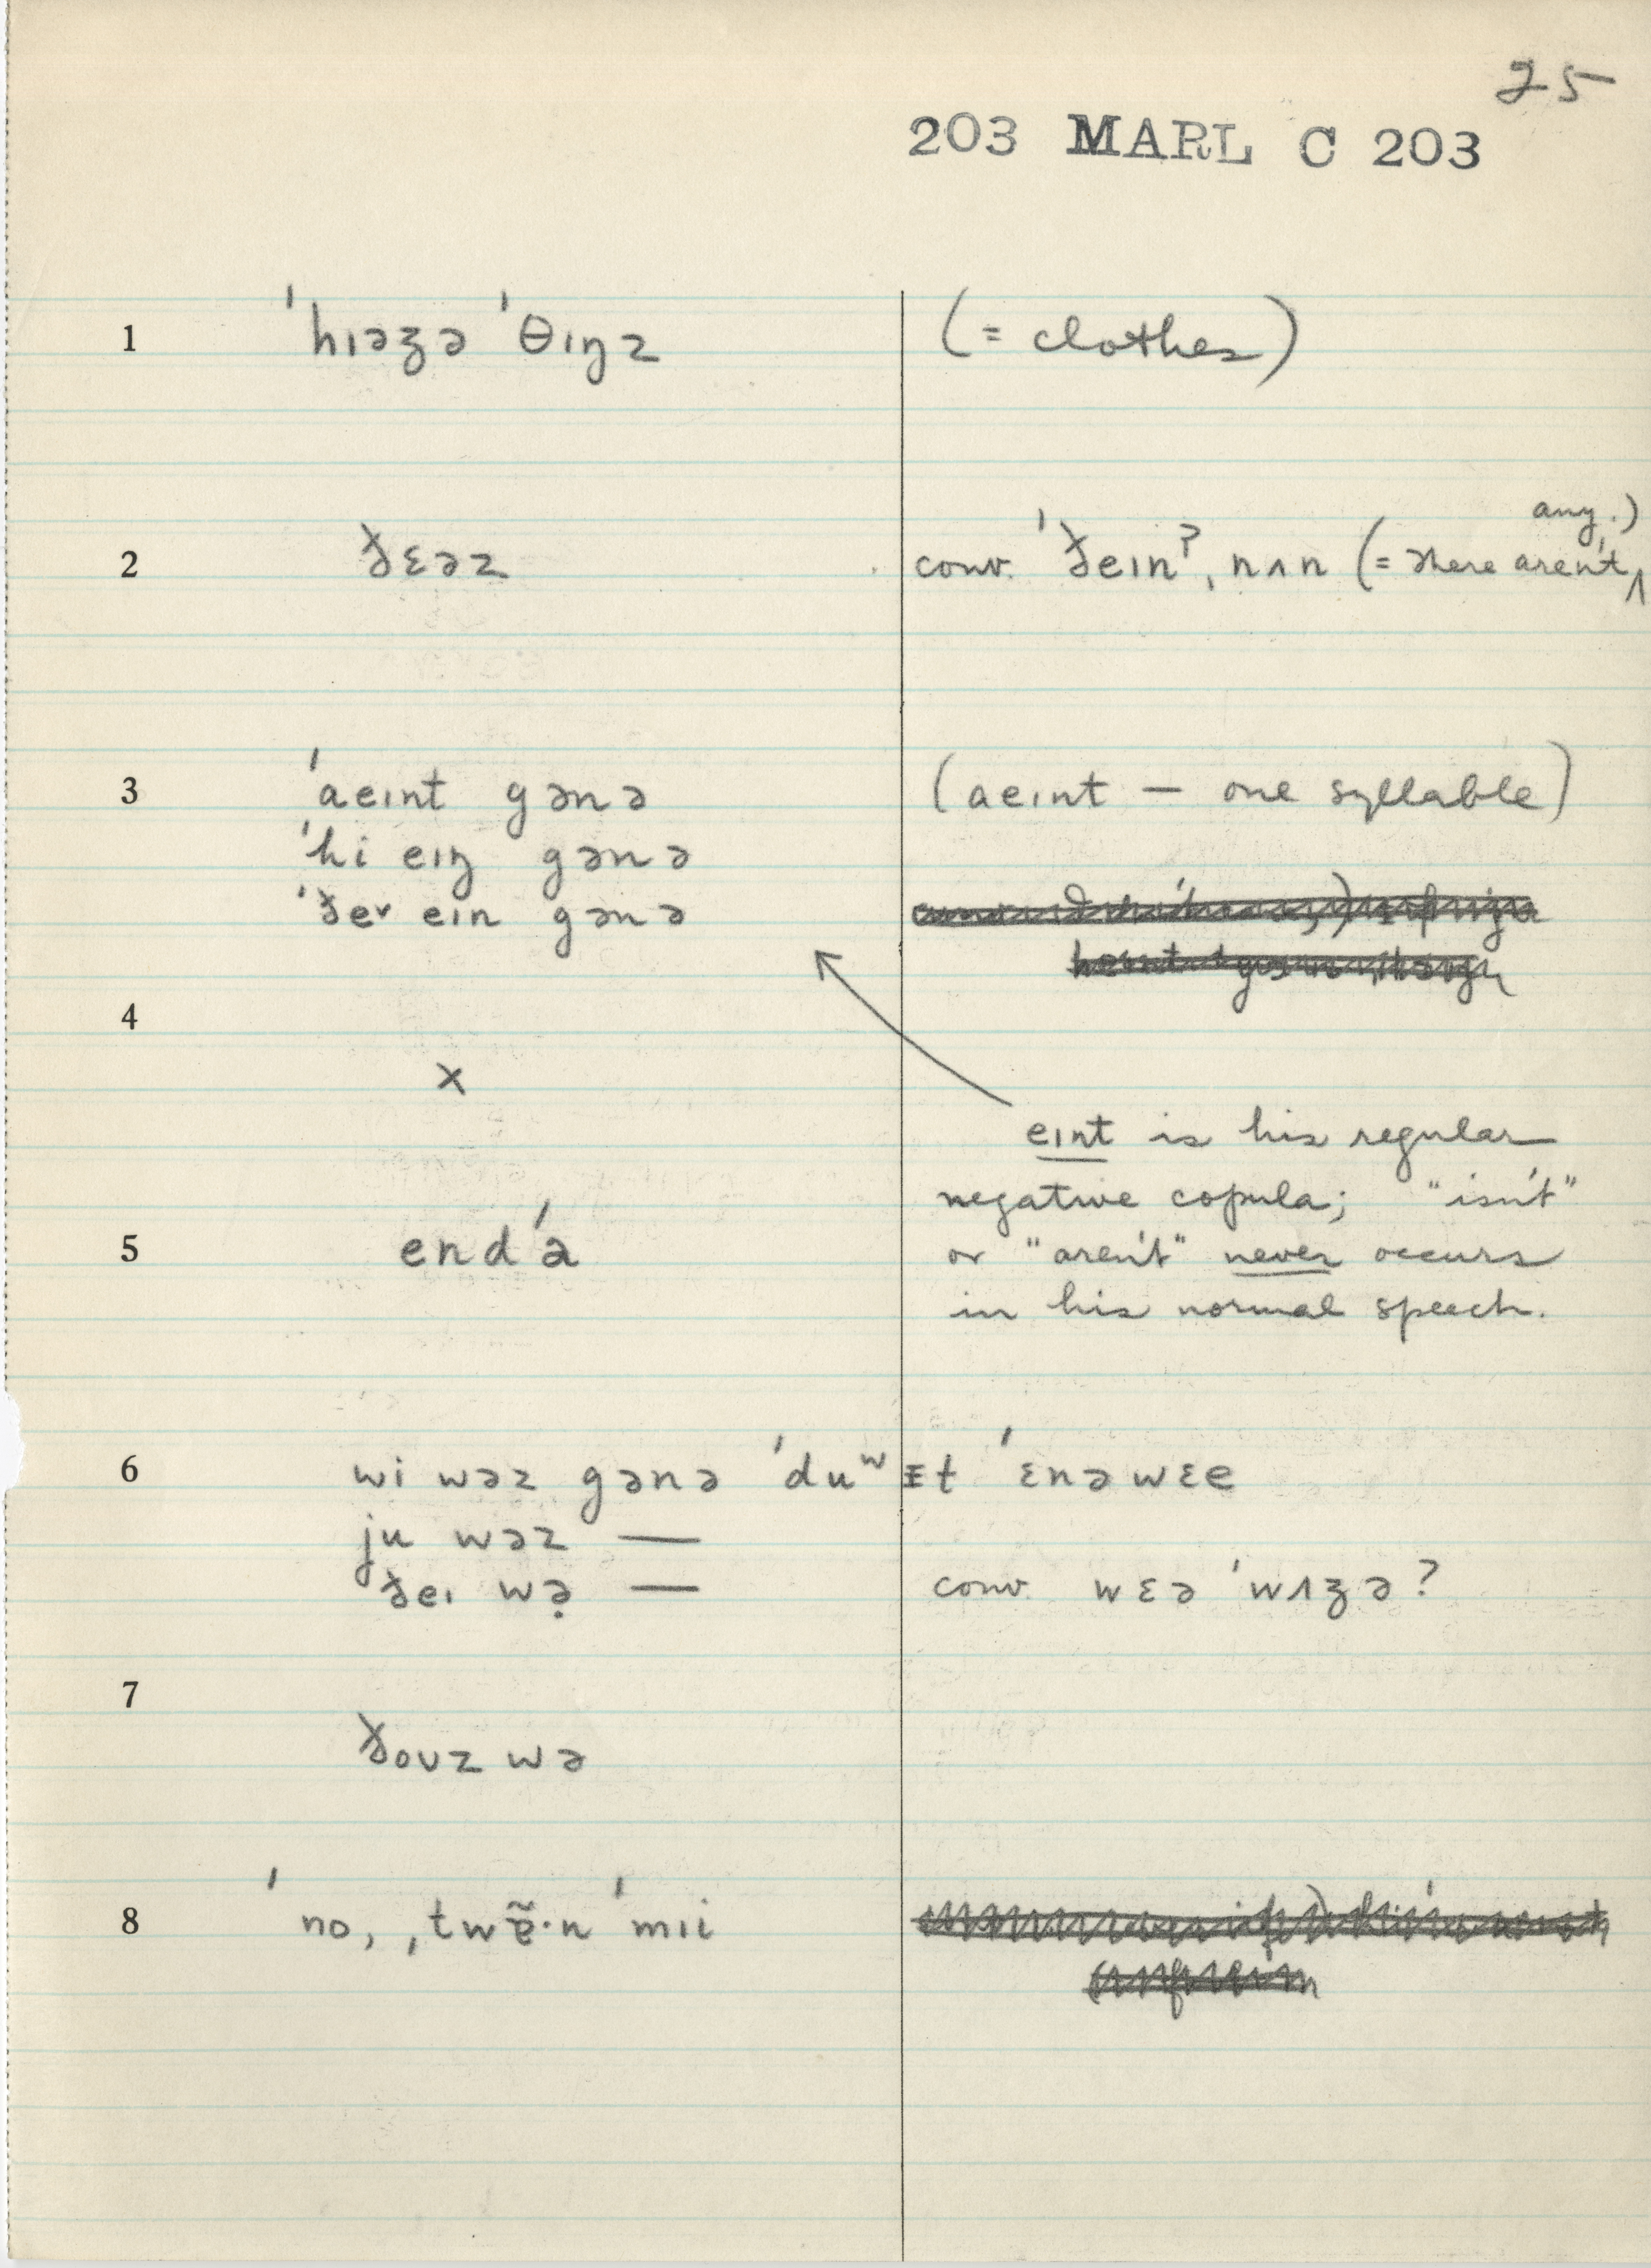 25
203 MARL C 203
1 ˈhɪəzə ˈθɪŋz (= clothes)
any.)
2 ðɛəz conv. ˈðeɪnˀ, nʌn (= there aren't ‸
3 ˈaeɪnt gənə (aeɪnt — one syllable)
ˈhi eɪŋ gənə
ˈðeɪ eɪn gənə
4
x
eɪnt is his regular
negative copula; "isn't"
5 endˈə or "aren't" never occurs
in his normal speech.
6 wi wəz gənə ˈduʷɪt ˈɛnəwɛe
ju wəz —
ðeɪ wə̣ — conv. wɛə ˈwʌzə?
7
ðoʊz wə
8 ˈno, ˌtwẽ·n ˈmɪi